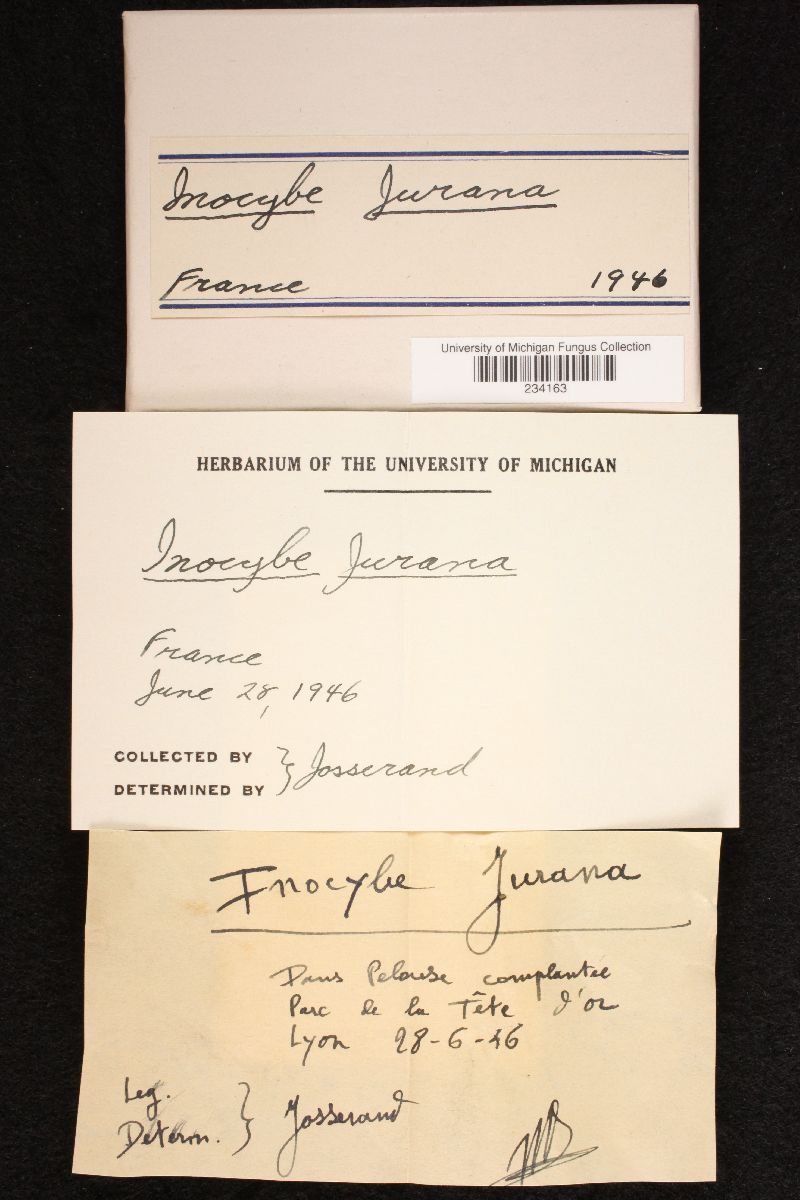 Inocybe Jurana
France 1946
University of Michigan Fungus Collection
234163
HERBARIUM OF THE UNIVERSITY OF MICHIGAN
Inocybe Jurana
France
June 28, 1946
COLLECTED BY
DETERMINED BY } Josserand
Inocybe Jurana
Dans Pelouse complantée
Parc de la Tête d'or
Lyon 28-6-46
Leg.
Determ. } Josserand